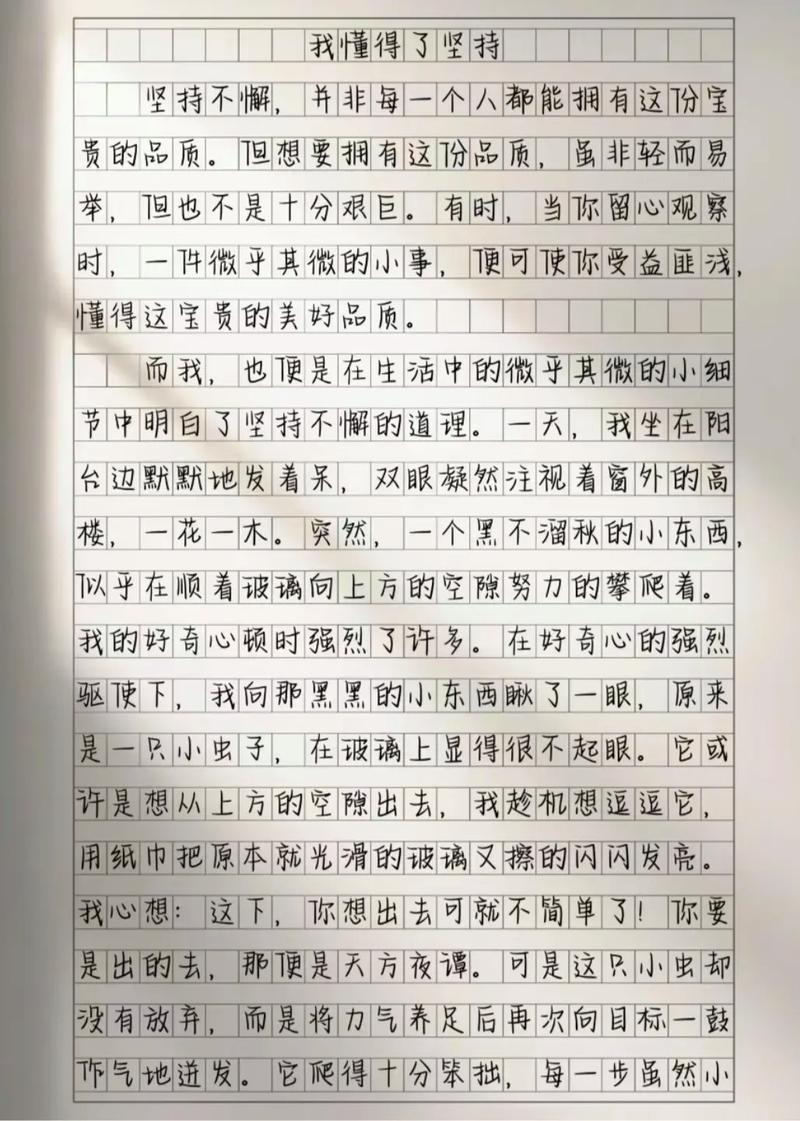 我懂得了坚持
坚持不懈，并非每一个人都能拥有这份宝
贵的品质。但想要拥有这份品质，虽非轻而易
举，但也不是十分艰巨。有时，当你留心观察
时，一件微乎其微的小事，便可使你受益匪浅，
懂得这宝贵的美好品质。
而我，也便是在生活中的微乎其微的小细
节中明白了坚持不懈的道理。一天，我坐在阳
台边默默地发着呆，双眼凝然注视着窗外的高
楼，一花一木。突然，一个黑不溜秋的小东西，
似乎在顺着玻璃向上方的空隙努力的攀爬着。
我的好奇心顿时强烈了许多。在好奇心的强烈
驱使下，我向那黑黑的小东西瞅了一眼，原来
是一只小虫子，在玻璃上显得很不起眼。它或
许是想从上方的空隙出去，我趁机想逗逗它，
用纸巾把原本就光滑的玻璃又擦的闪闪发亮。
我心想：这下，你想出去可就不简单了！你要
是出的去，那便是天方夜谭。可是这只小虫却
没有放弃，而是将力气养足后再次向目标一鼓
作气地迸发。它爬得十分笨拙，每一步虽然小